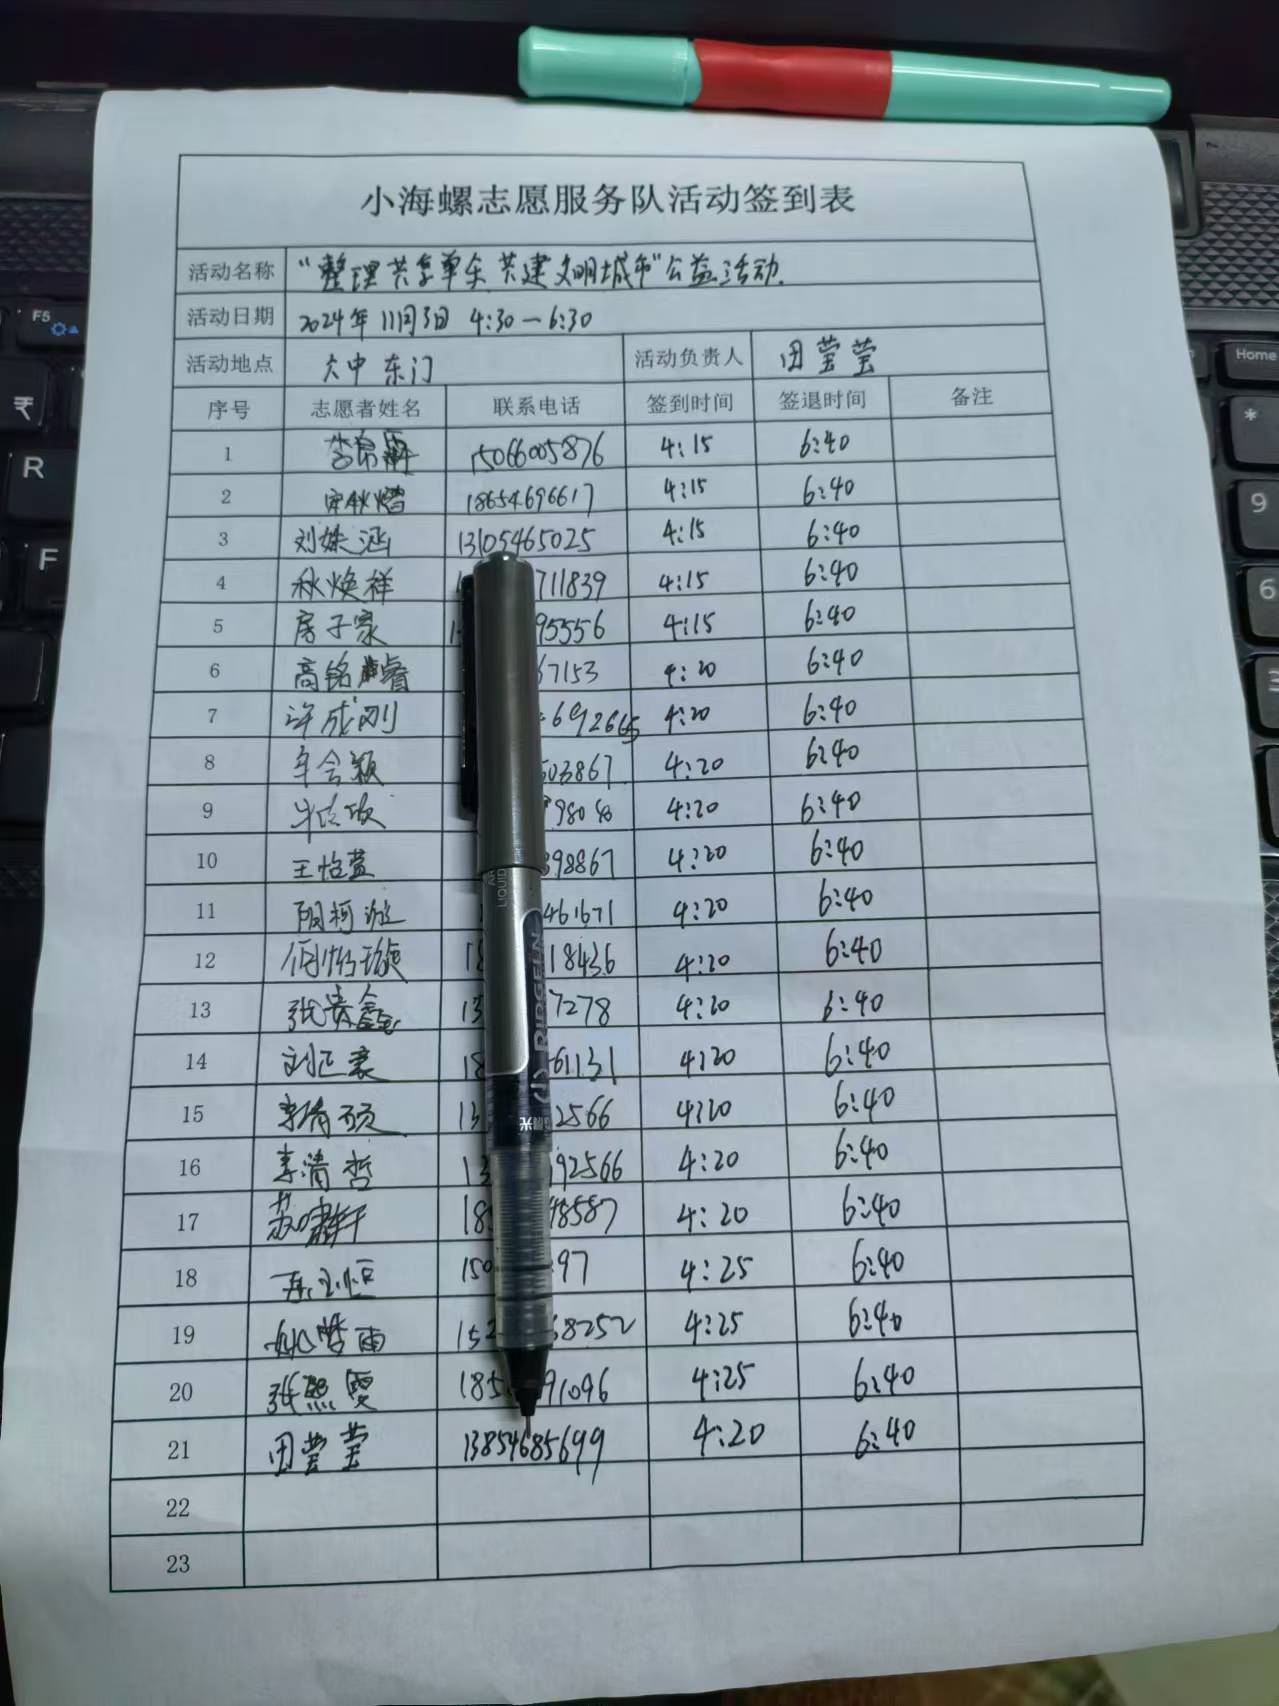 小海螺志愿服务队活动签到表
活动名称 "整理共享单车 共建文明城市"公益活动.
活动日期 2024年11月3日 4:30—6:30
活动地点 六中东门 活动负责人 田莹莹
序号 志愿者姓名 联系电话 签到时间 签退时间 备注
1 15066005876 4:15 6:40
2 18654696617 4:15 6:40
3 刘姝涵 13105465025 4:15 6:40
4 秋焕祥 711839 4:15 6:40
5 房子家 95556 4:15 6:40
6 高铭睿 67153 4:20 6:40
7 许成刚 692665 4:20 6:40
8 车会颖 503867 4:20 6:40
9 4:20 6:40
10 王怡蓝 398867 4:20 6:40
11 461671 4:20 6:40
12 18 18436 4:20 6:40
13 张贵鑫 13 7278 4:20 6:40
14 18 61131 4:20 6:40
15 13 2566 4:20 6:40
16 李清哲 13 92566 4:20 6:40
17 苏啸轩 18 48587 4:20 6:40
18 150 97 4:25 6:40
19 152 68252 4:25 6:40
20 张熙雯 185 91096 4:25 6:40
21 田莹莹 13854685699 4:20 6:40
22
23
LIQUID
F5
₹
R
F
Home
*
9
6
3